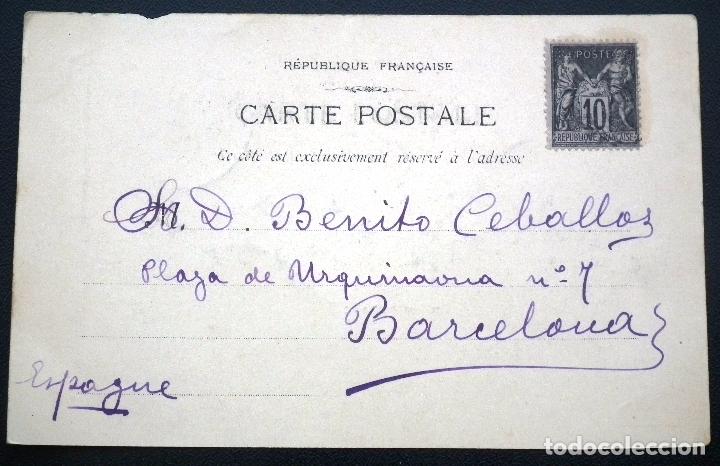 POSTE
10
RÉPUBLIQUE FRANÇAISE
RÉPUBLIQUE FRANÇAISE
CARTE POSTALE
Ce côté est exclusivement réservé à l'adresse
D. Benito Ceballos
Plaza de Urquinaona nº 7
Barcelona
Espagne
todocoleccion